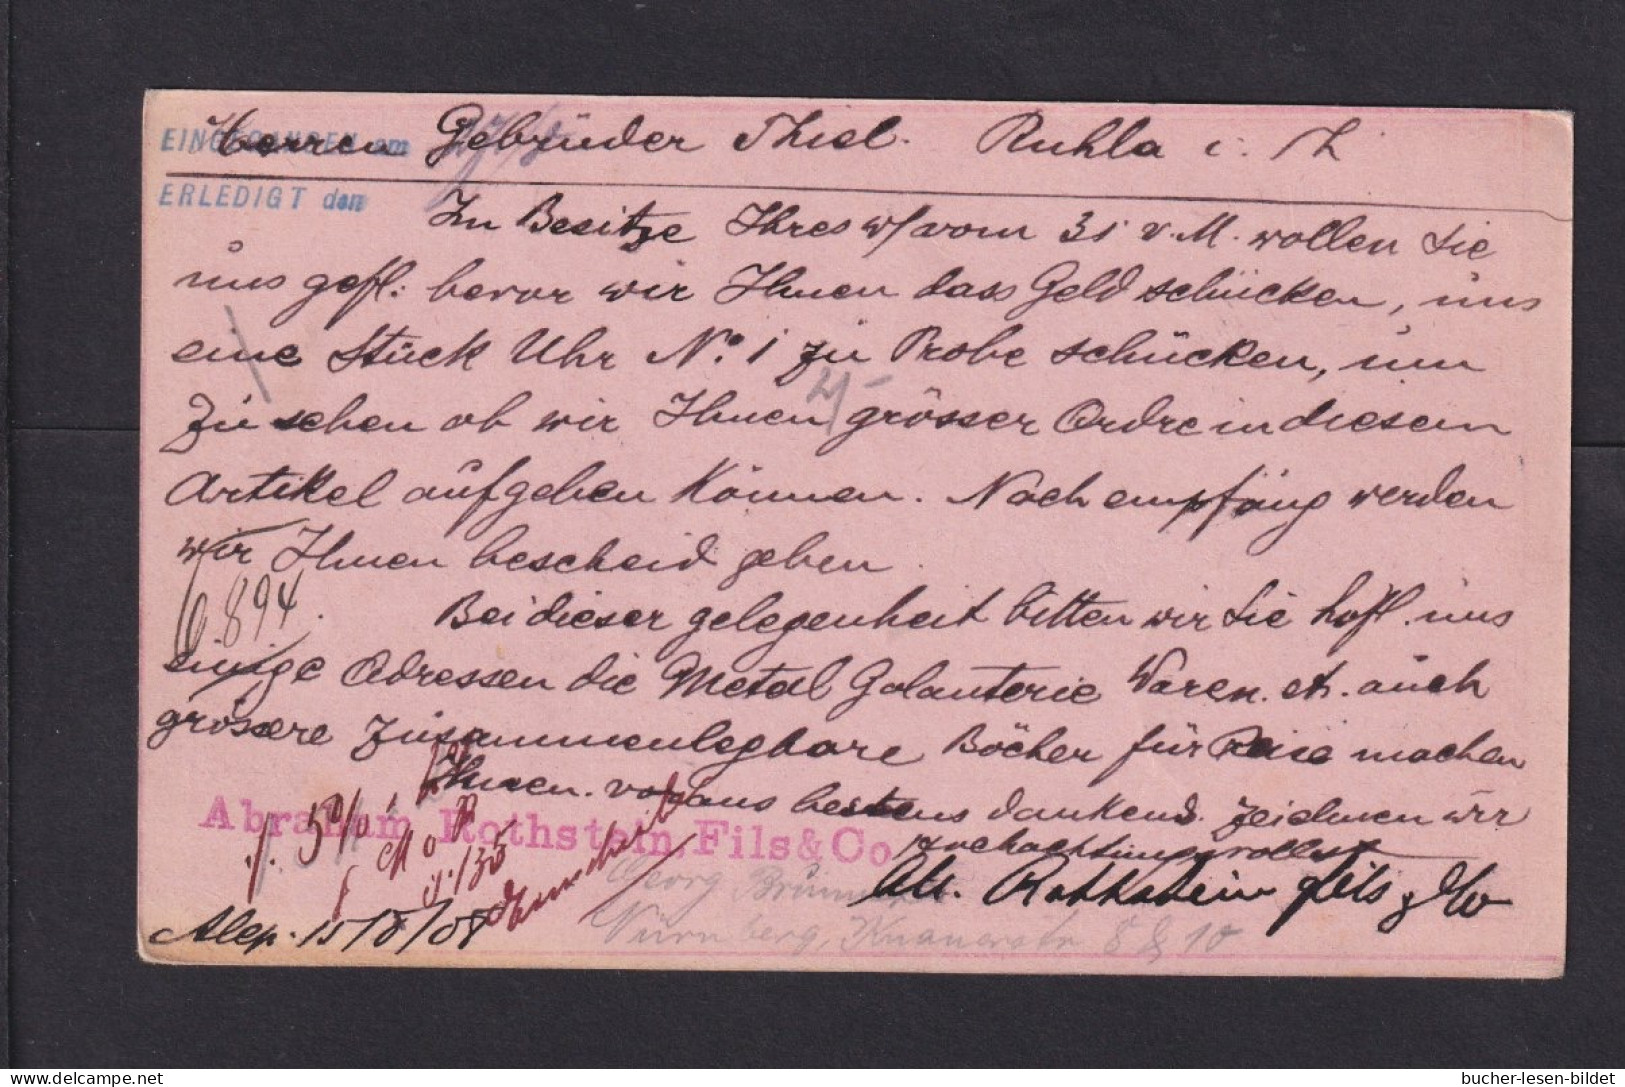 EINGEGANGEN am
Herren Gebrüder Thiel. Ruhla i. Th
ERLEDIGT den
Im Besitze Ihres w/ vom 31 v. M. wollen Sie
uns gefl: bevor wir Ihnen dass Geld schücken, uns
eine Stück Uhr No. 1 zu Probe schücken, um
zu sehen ob wir Ihnen grösser Ordre in diesem
Artikel aufgeben können. Nach empfäng werden
wir Ihnen bescheid geben.
6.894
Bei dieser gelegenheit bitten wir Sie höfl. uns
einige Adressen die Metal Galanterie Waren. et. auch
grössere zusammenlegbare Böcher für Reise machen
Ihnen. voraus bestens dankend. zeichnen wir
Abraham Rothstein, Fils & Co
hochachtungsvollst
Ab. Rothstein fils & Co
5%
1/135
Georg
Nürnberg, Knauerstr 8 & 10
Alep. 15/8/08
bucher-lesen-bildet